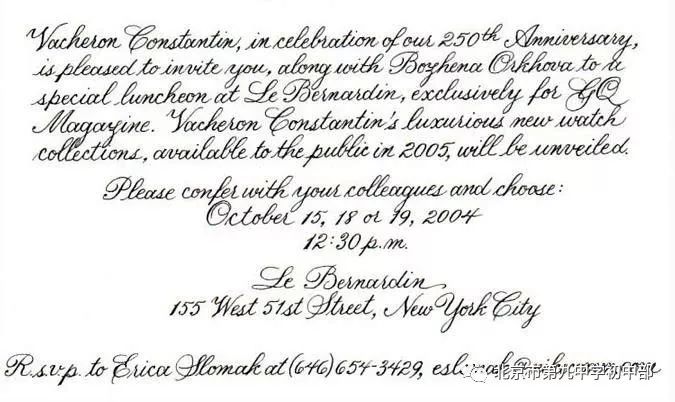 Vacheron Constantin, in celebration of our 250th Anniversary,
is pleased to invite you, along with Bozhena Orkhova to a
special luncheon at Le Bernardin, exclusively for GQ
Magazine. Vacheron Constantin's luxurious new watch
collections, available to the public in 2005, will be unveiled.
Please confer with your colleagues and choose:
October 15, 18 or 19, 2004
12:30 p.m.
Le Bernardin
155 West 51st Street, New York City
R.s.v.p. to Erica Slomak at (646) 654-3429,
北京市第九中学初中部